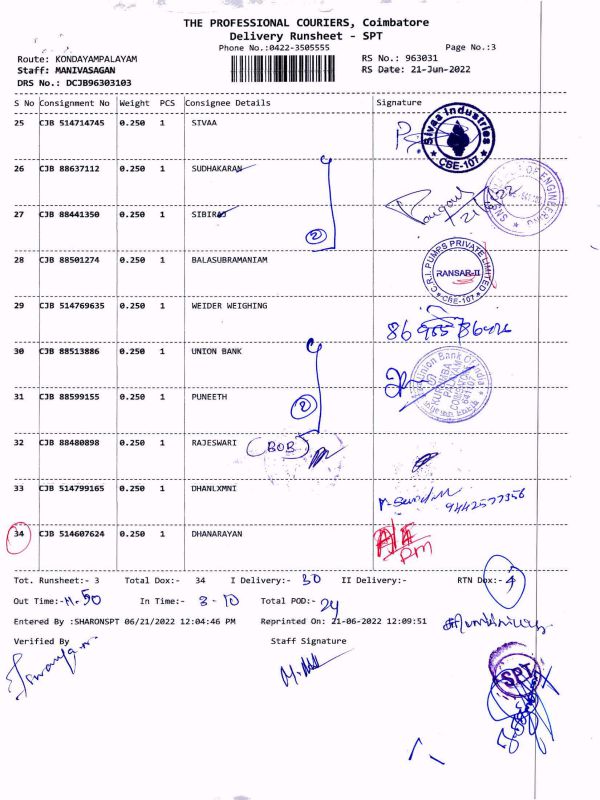 THE PROFESSIONAL COURIERS, Coimbatore
Delivery Runsheet - SPT
Phone No.:0422-3505555
Page No.:3
Route: KONDAYAMPALAYAM
RS No.: 963031
Staff: MANIVASAGAN
RS Date: 21-Jun-2022
DRS No.: DCJB96303103
S No Consignment No Weight PCS Consignee Details Signature
25 CJB 514714745 0.250 1 SIVAA
Sivaa Industries
* CBE-107 *
26 CJB 88637112 0.250 1 SUDHAKARAN
27 CJB 88441350 0.250 1 SIBIRAJ
2
28 CJB 88501274 0.250 1 BALASUBRAMANIAM
C.R.I. PUMPS PRIVATE LIMITED
RANSAR-II
* CBE-107 *
29 CJB 514769635 0.250 1 WEIDER WEIGHING
30 CJB 88513886 0.250 1 UNION BANK
Union Bank Of India
31 CJB 88599155 0.250 1 PUNEETH
2
32 CJB 88480898 0.250 1 RAJESWARI (BOB)
33 CJB 514799165 0.250 1 DHANLXMNI
9442577356
34 CJB 514607624 0.250 1 DHANARAYAN
Tot. Runsheet:- 3 Total Dox:- 34 I Delivery:- 30 II Delivery:- RTN Dox:-
Out Time:- 11.50 In Time:- 3-10 Total POD:- 24
Entered By :SHARONSPT 06/21/2022 12:04:46 PM Reprinted On: 21-06-2022 12:09:51
Verified By Staff Signature
SPT